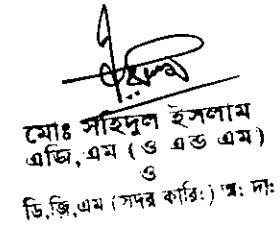 মোঃ সহিদুল ইসলাম
এজি, এম (ও এন্ড এম)
ও
ডি,জি,এম (সদর কারি:) অ: দা: